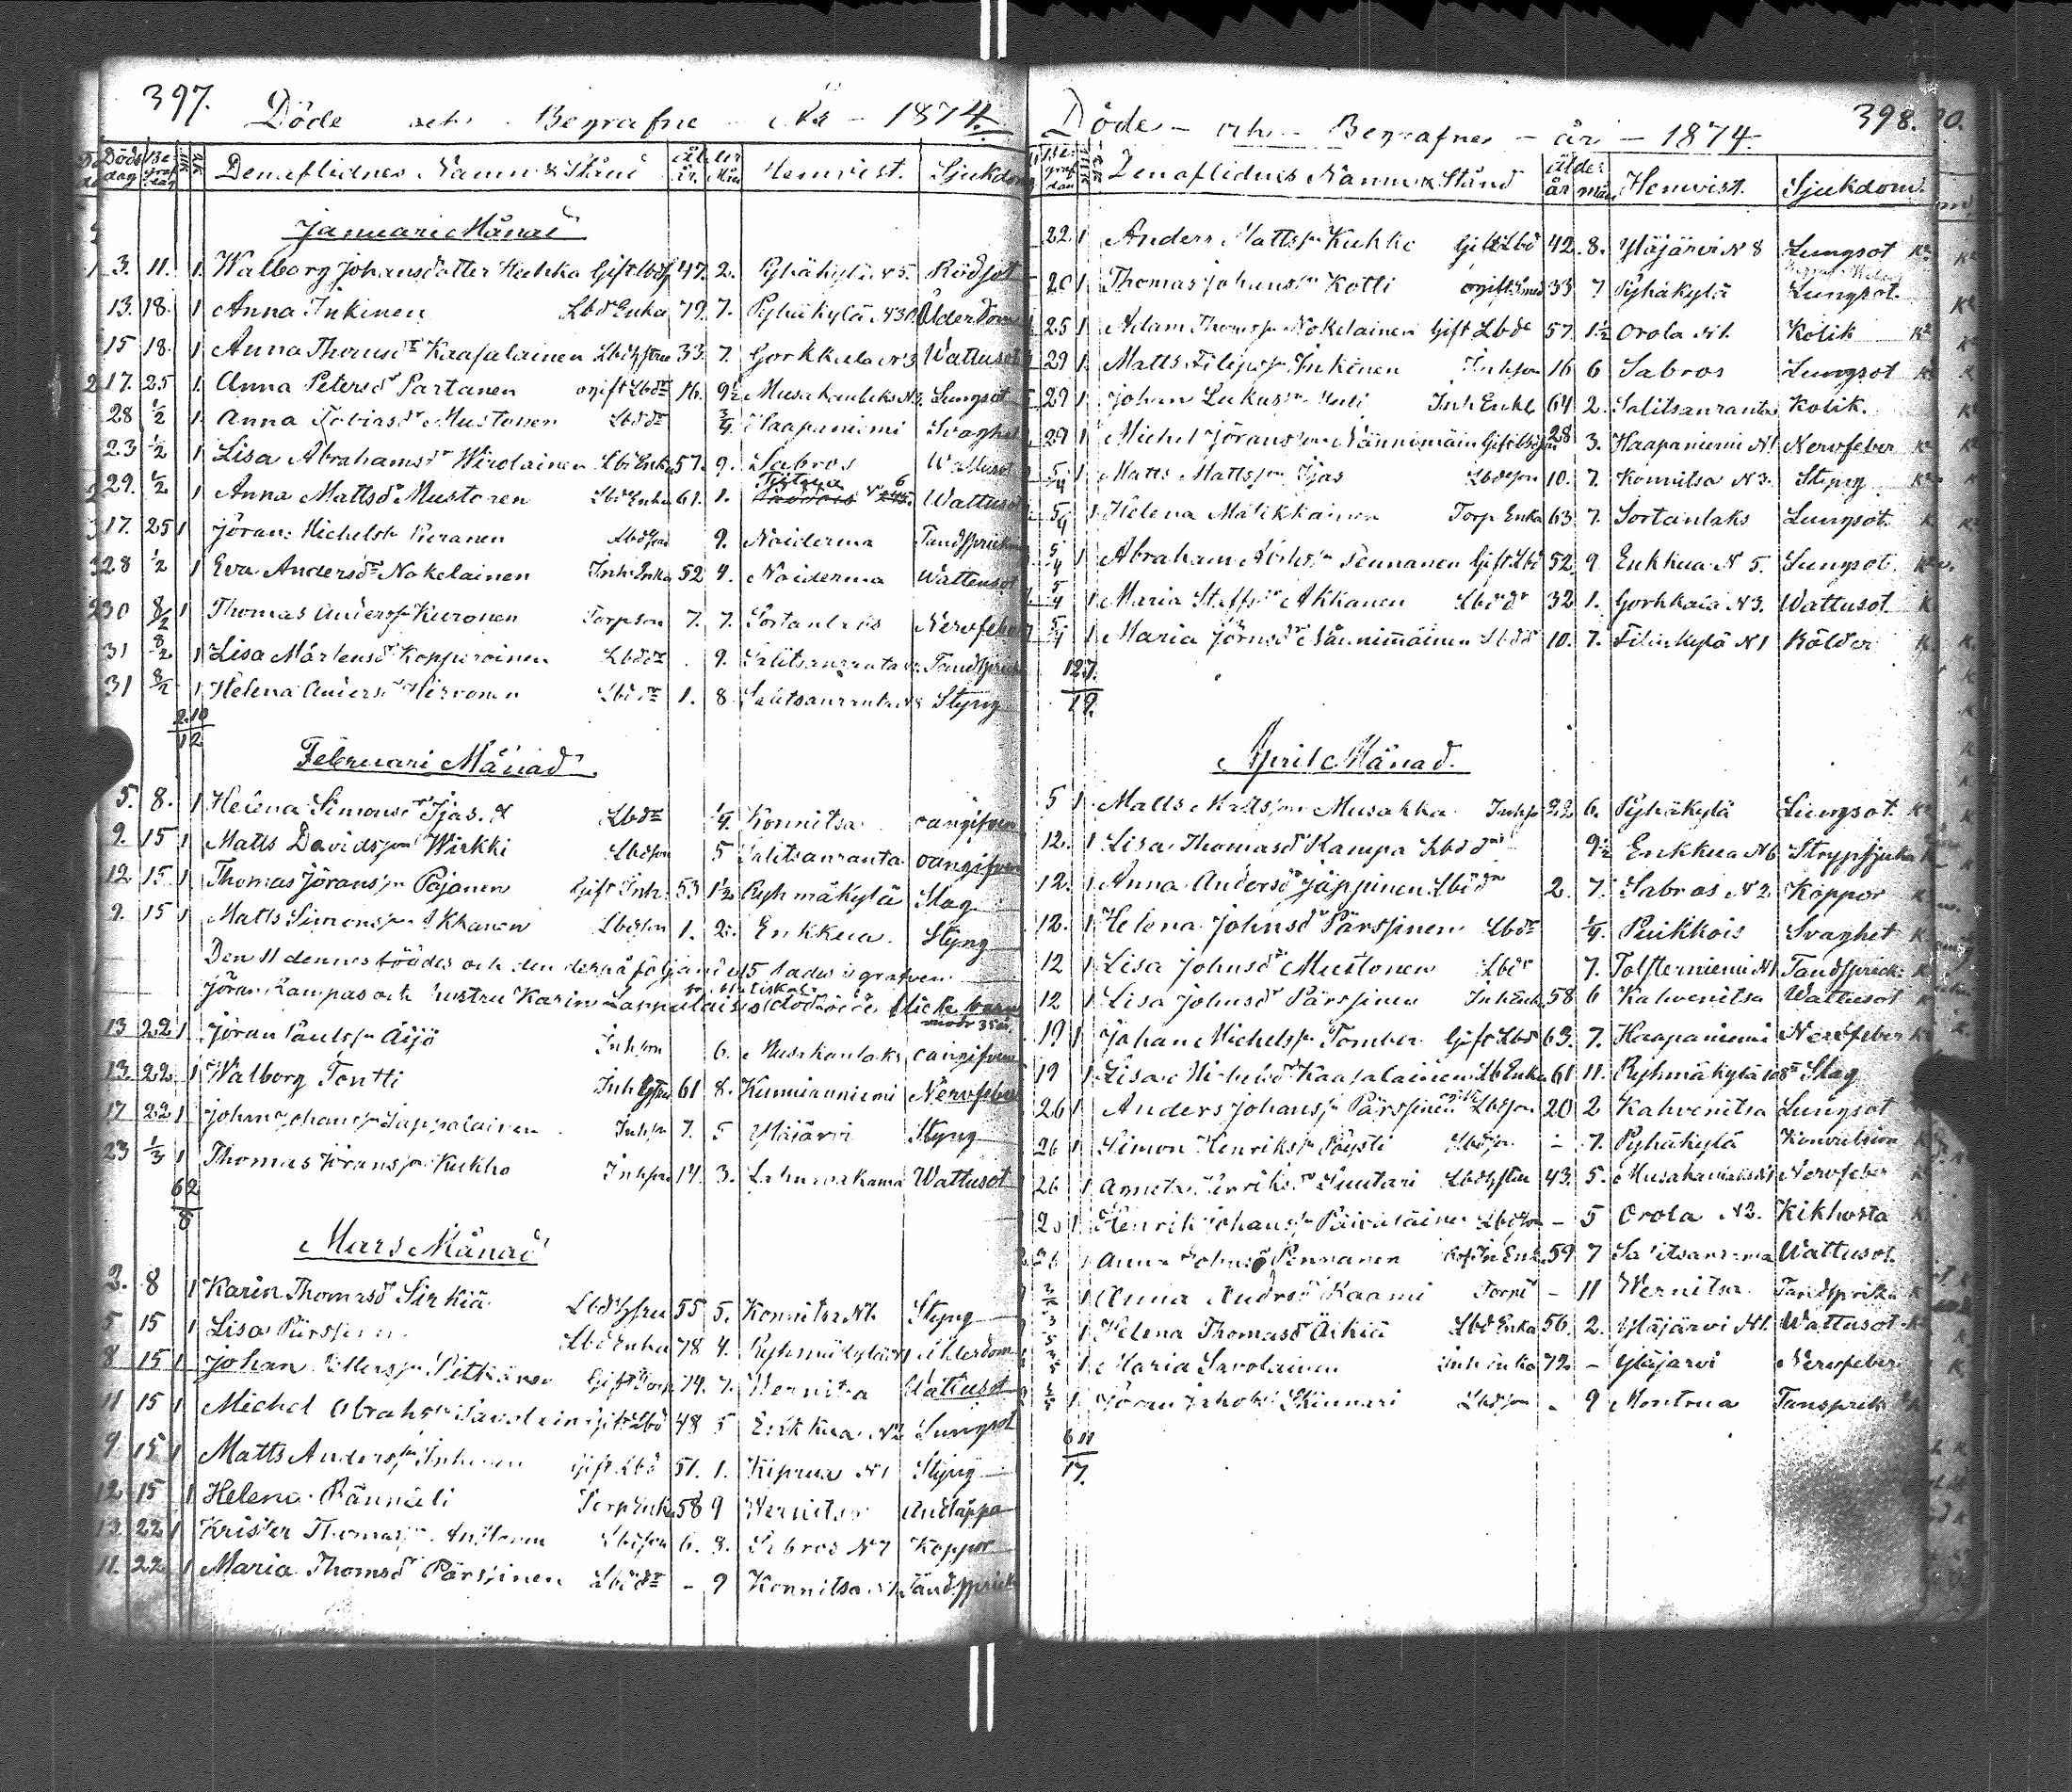 397.
Döde och Begrafne År 1874.
Döds dag Be graf dag Den aflidnes Namn & Stånd Ålder år. Mån Hemvist. Sjukdom
Januari Månad
3. 11. 1. Walborg Johansdotter Kukka Gift Lbd 47. 2. Pyhäkylä N 5. Rödsot
13. 18. 1 Anna Inkinen Lbd Enka 79. 7. Pyhäkylä N 30. Ålderdom
15 18. 1 Anna Thomsdr Kaasalainen Lbdhstru 33. 7. Gorkkala N 3 Wattusot
17. 25 1. Anna Petersdr Partanen ogift Lbdr 16. 9½ Musakanlaks N 2. Lungsot
28 1/2 1. Anna Tobiasdr Mustonen Lbdr 3/4 Haapaniemi Svaghet
23 1/2 1 Lisa Abrahamsdr Wirolainen Lbd Enka 57. 9. Sabros Wattusot
29. 1/2 1 Anna Mattsdr Mustonen Lbd Enka 61. 1. N 6 Wattusot
17. 25 1 Jöran Michelsson Puranen Lbdson 9. Noiderma Tandsprick
28 1/2 1 Eva Andersdr Nokelainen Inh Enka 52 4. Noiderma Wattusot
30 8/2 1 Thomas Anderss Kuronen Torpson 7. 7. Sortanlaks Nervfeber
31 8/2 1 Lisa Mårtensdr Kopperoinen Lbdr . 9. Salitsanranta Tandsprick
31 8/2 1 Helena Andersdr Hirvonen Lbdr 1. 8 Salitsanranta N 8 Styng
2.10
12
Februari Månad.
5. 8. 1 Helena Simonsdr Ijas. Lbdr 1/4. Konnitsa oangifven
9. 15 1 Matts Davidsson Wirkki Lbdson 5 Salitsanranta oangifven
12. 15. 1 Thomas Jöransson Pajanen Gift Inh. 53 1½ Ryhmäkylä Slag
9. 15 1 Matts Simonsson Akkanen Lbdson 1. 2. Enkkua Styng
Den 11 dennes föddes och den derpå följande 15 lades i grafven
Jöran Kampas och hustru Karin Lappalaises dödfödde flicke barn
moder 35 år.
13 22 1 Jöran Paulsson Äijö Inhson 6. Musakanlaks oangifven
13. 22. 1 Walborg Tontti Inh hstru 61 8. Kunnianniemi Nervfeber
17 22 1 Johan Johansson Lappalainen Inhsn 7. 5 Yläjärvi Styng
23 1/3 1 Thomas Jöransson Kukko Inhson 14. 3. Wattusot
6 2
8
Mars Månad
2. 8 1 Karin Thomasdr Sirkiä Lbdhstru 55 5. Konnitsa N 1. Styng
5 15 1 Lisa Pärssinen Lbd Enka 78 4. Ryhmäkylä N 1 Ålderdom
8 15 1 Johan Pitkänen Gift Torp 74. 7. Wernitsa Wattusot
11 15 1 Michel Abrahsn Savolain Gift Lbd 48 5 Enkkua N 2 Lungsot
9 15 1 Matts Anderss Inkinen Gift Lbd 51. 1. Kiprua N 1 Styng
12 15 1 Helena Rännäli Torp Enka 58 9 Wernitsa Andtäppa
13. 22 1 Krister Thomasn Anttonen Lbdson 6. 8. Sabros N 7 Koppor
11. 22 1 Maria Thomsd Pärssinen Lbdr - 9 Konnitsa N 1 Tandsprick
398.
Döde och Begrafne år 1874.
Be graf dag Den aflidnes Namn & Stånd Ålder år mån Hemvist. Sjukdom.
22 1 Anders Mattsson Kukko Gift Lbd 42. 8. Yläjärvi N 8 Lungsot
20 1 Thomas Johansson Kotti ogift Smed 33 7 Pyhäkylä Lungsot
25 1 Adam Thomsn Nokelainen Gift Lbd 57. 1½ Orola N 1. Kolik
29 1 Matts Filipsn Inkinen Inhson 16 6 Sabros Lungsot
29 1 Johan Lukasn Inh Enkl 64 2. Salitsanranta Kolik.
29 1 Michel Jöransson Nännimäin Gift 28 3. Haapaniemi N 1 Nervfeber
5/4 1 Matts Mattsson Ijas Lbdson 10. 7. Konnitsa N 3. Styng
5/4 1 Helena Matikkainen Torp Enka 63 7. Sortanlaks Lungsot
5/4 1 Abraham Pennanen Gift Lbd 52. 9 Enkkua N 5. Lungsot
5/4 1 Maria Staffsdr Akkanen Lbdr 32 1. Gorkkala N 3. Wattusot
5/4 1 Maria Jörnsdr Nännimäinen Lbdr 10. 7. N 1 Kålder
12.7.
19.
April Månad.
5 1 Matts Mattsson Musakka Inhsn 22 6. Pyhäkylä Lungsot.
12. 1 Lisa Thomasd Kampa Lbdr 9½ Enkkua N 6 Strypsjuka
12. 1 Anna Andersdr Jäppinen Lbdr 2. 7. Sabros N 2. Koppor
12. 1 Helena Johnsdr Pärssinen Lbdr 1/4. Puikkois Svaghet
12 1 Lisa Johnsdr Mustonen Lbdr 7. Tolsterniemi N 1 Tandsprick
12 1 Lisa Johnsdr Pärssinen Inh Enka 58 6 Kahvenitsa Wattusot
19 1 Johan Michelsson Tomber Gift Lbd 63. 7. Haapaniemi Nervfeber
19 1 Lisa Michelsd Kaasalainen Lb Enka 61 11. Ryhmäkylä Slag
26 1 Anders Johanss Pärssinen ogift Lbdson 20 2 Kahvenitsa Lungsot
26 1 Simon Henrikss Pöysti Lbdsn. - 7. Pyhäkylä Konvulsion
26 1 Henriksd Suutari Lbdhstru 43. 5. Musakanlaks N 1 Nervfeber
26 1 Henrik Johanss Päiväläinen Lbdson - 5 Orola N 2. Kikhosta
26 1 Anna Johnsd Pennanen Enk 59 7 Salitsanranta Wattusot.
1 Anna Andrsd Kaami Torpd - 11 Wernitsa Tandspricka
3/5 1 Helena Thomasd Äikiä Lbd Enka 56. 2. Yläjärvi N 1. Wattusot
3/5 1 Maria Savolainen Inh Enka 72 - Yläjärvi Nervfeber
3/5 1. Jöran Jakobs Skinnari Lbdson - 9 Montrua Tansprick
6 11
17.